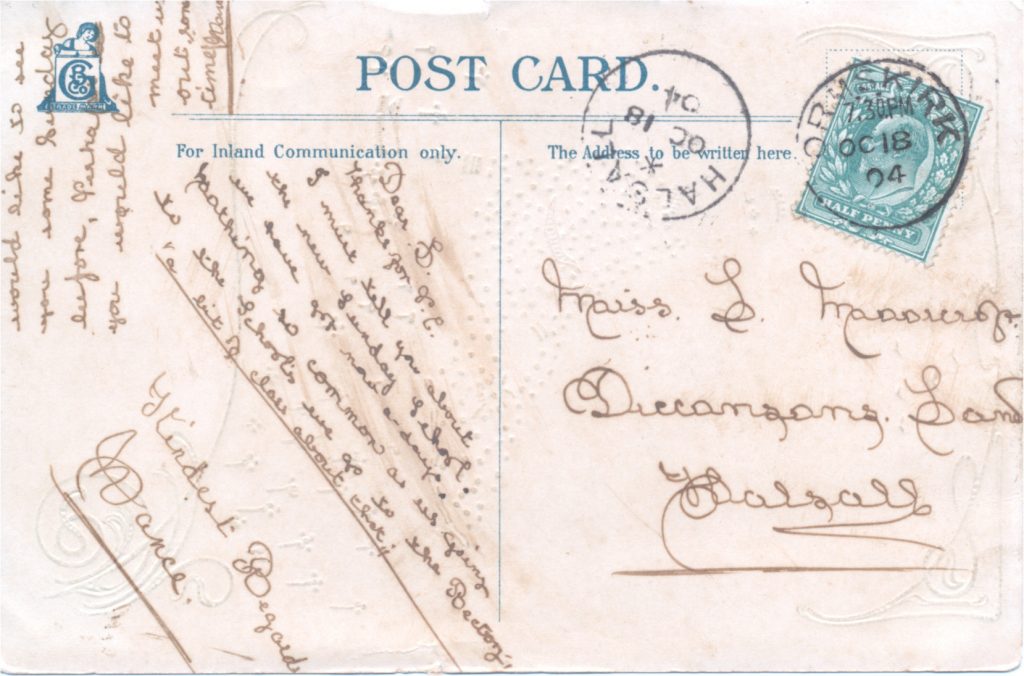 POST CARD.
For Inland Communication only.
The Address to be written here.
HALSALL
OC 18
04
ORMSKIRK
7.30PM
OC 18
04
HALF PENNY
Dear L.
Thanks for P.C.
I must tell you about
the new Sunday School.
we have got now a-days.
Nothing so common as us going
to the Schools we go to the Rectory,
a bit of class about that!!
Kindest Regards
Nance.
would like to see
you some Sunday
before,
you would like to
meet us
out some
time
Miss. L.
Diccansons. Land
Halsall